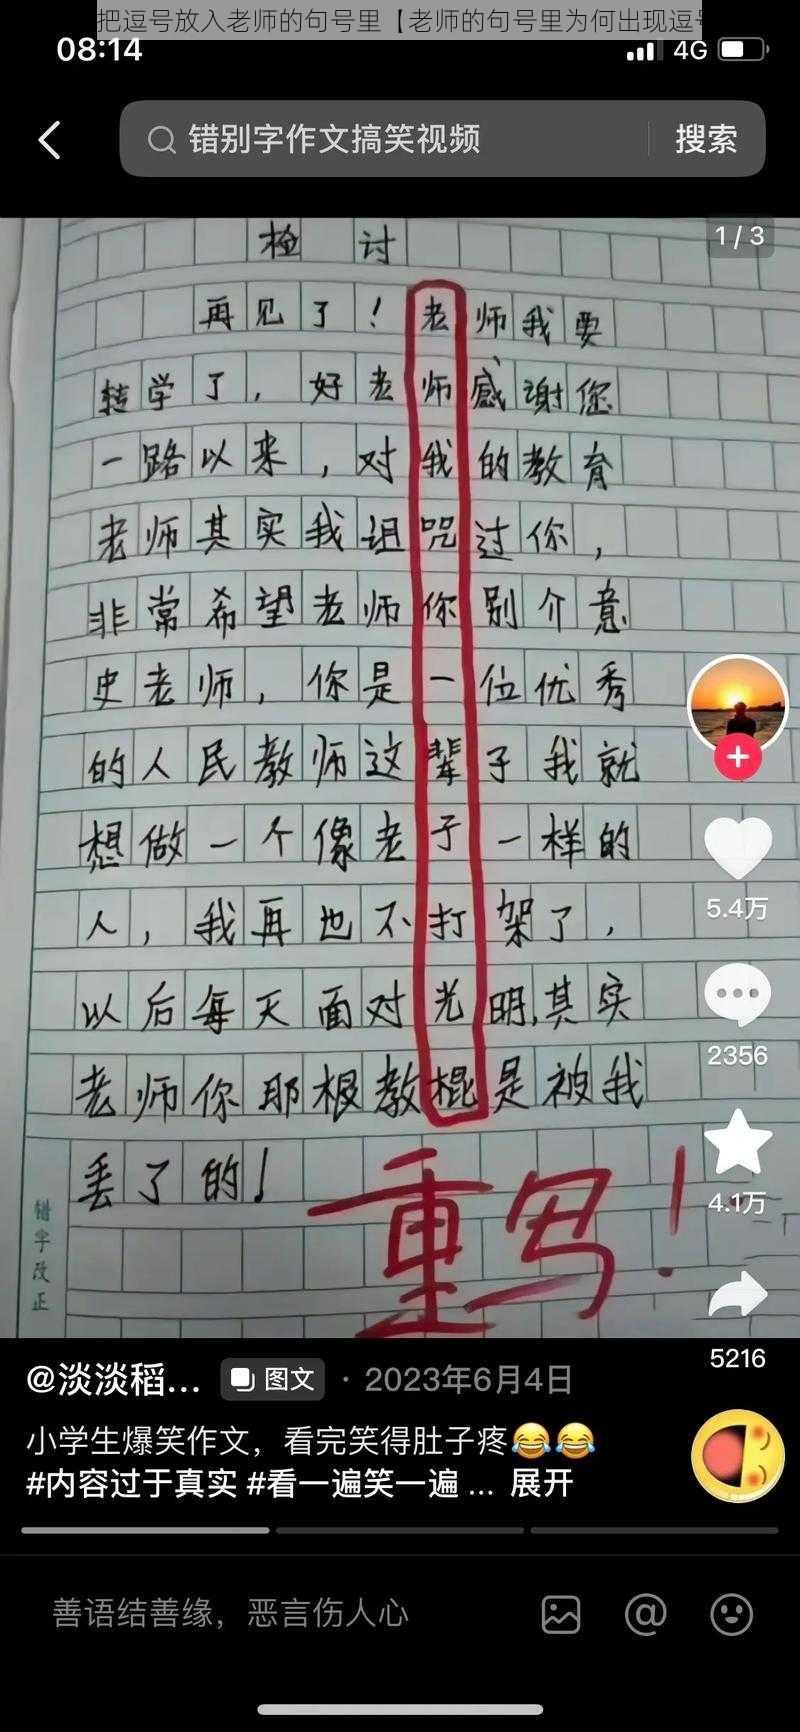 把逗号放入老师的句号里【老师的句号里为何出现逗号
08:14
4G
错别字作文搞笑视频
搜索
1/3
检讨
再见了！老师我要
转学了，好老师感谢您
一路以来，对我的教育
老师其实我诅咒过你，
非常希望老师你别介意
史老师，你是一位优秀
的人民教师这辈子我就
想做一个像老子一样的
人，我再也不打架了，
以后每天面对光明，其实
老师你耶根教棍是被我
丢了的！
重写！
错字改正
5.4万
2356
4.1万
5216
@淡淡稻...
图文
· 2023年6月4日
小学生爆笑作文，看完笑得肚子疼😂😂
#内容过于真实 #看一遍笑一遍 ... 展开
善语结善缘，恶言伤人心